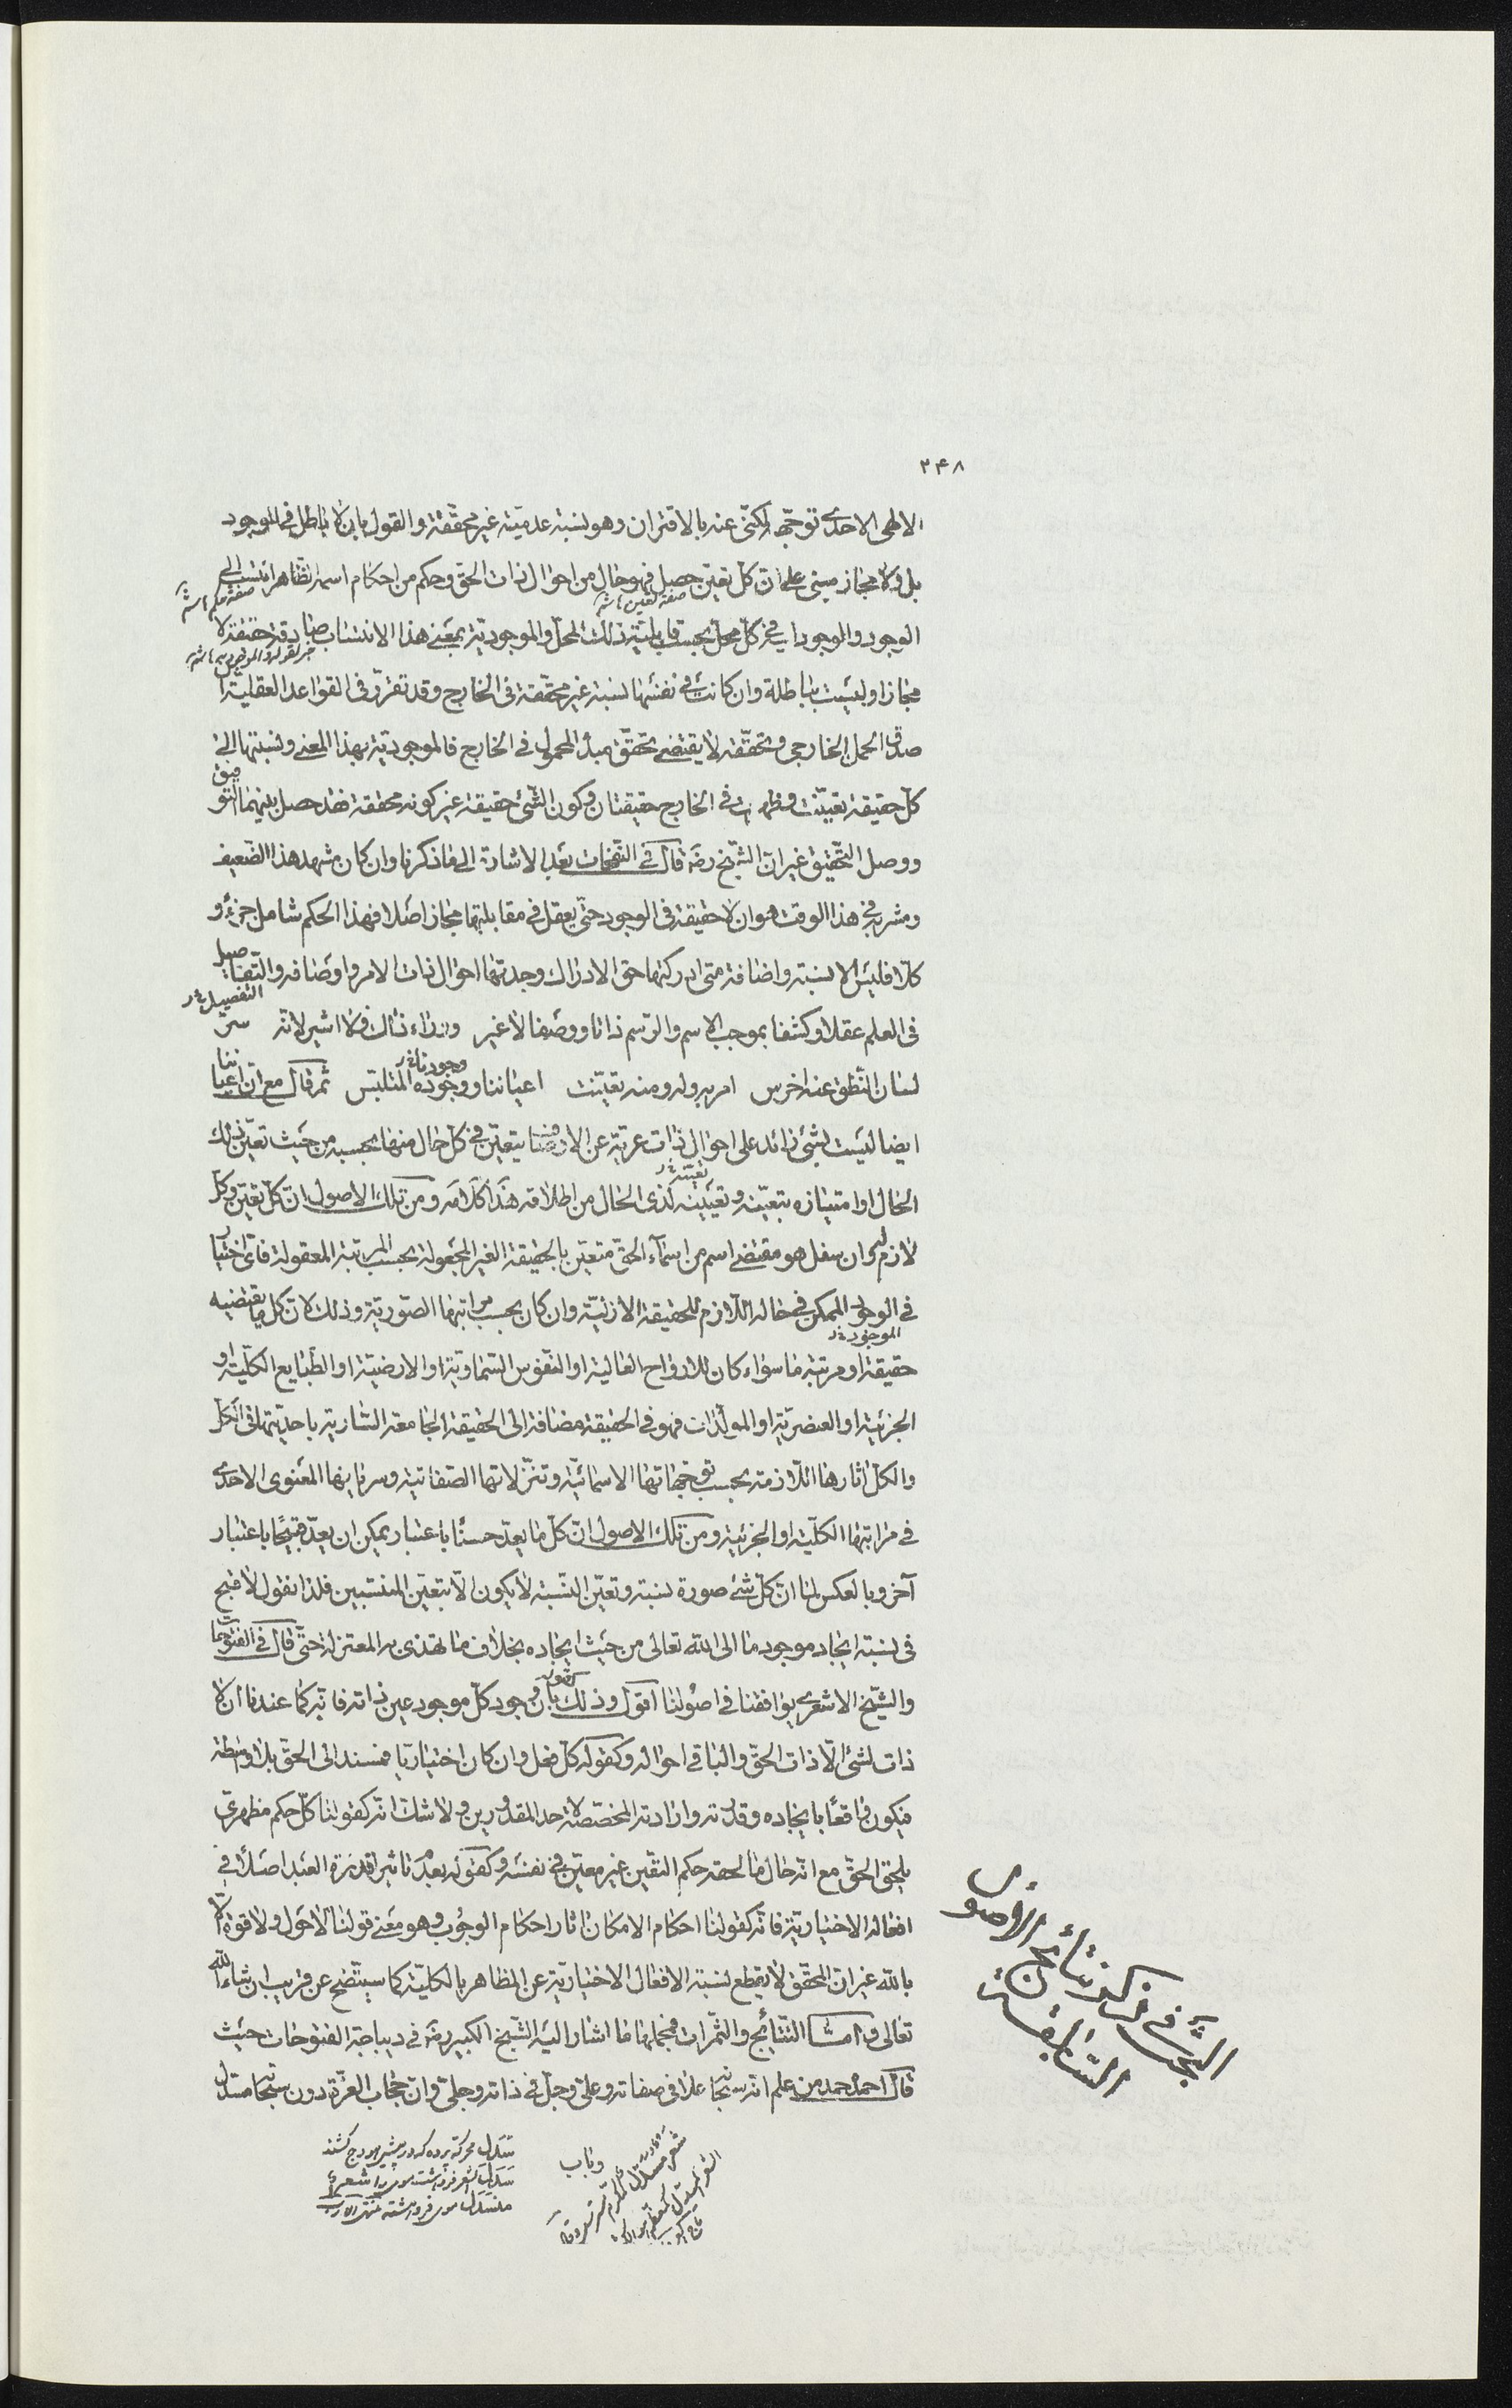 ۲۴۸
الالهى الاحدى توجّه المكنّى عنه بالاقتران وهو نسبة عدميّة غير محقّقة والقول بان لا باطل فى الوجود
بل ولا مجاز مبنى على ان كلّ تعيّن حصل فهو حال من احوال ذات الحق وحكم من احكام اسمه الظاهر انتسب الى
صفة تعين صفة حكم
الوجود والموجود فى كلّ محل بحسب قابليّة ذلك المحل والموجوديّة بمعنى هذا الانتساب صادقة حقيقة لا
خبر لقوله والموجودية
مجازا وليست بباطلة وان كانت فى نفسها نسبة غير محقّقة فى الخارج وقد تقرّر فى القواعد العقلية ان
صدق الحمل الخارجى وتحقّقه لا يقتضى تحقّق مبدأ المحمول فى الخارج فالموجوديّة بهذا المعنى ونسبتها الى
كلّ حقيقة تعيّنت وظهرت فى الخارج حقيقتان وكون الشئ حقيقة غير كونه محققة فقد حصل بينهما التوفيق
ووصل التحقيق غير ان الشيخ رضه قال فى النفحات بعد الاشارة الى ما ذكرنا وان كان مشهد هذا الضعيف
ومشربه فى هذا الوقت هو ان لا حقيقة فى الوجود حتى يعقل فى مقابلتها مجاز اصلا فهذا الحكم شامل جزءا و
كلّا فليس الا نسبة واضافة متى ادركتها حق الادراك وجدتها احوال ذات الامر واوصافه والتفاصيل
التفصيل
فى العلم عقلا وكشفا بموجب الاسم والرسم ذاتا ووصفا لا غير وراء ذاك فلا اشير لانه سرّ
لسان النطق عنه اخرس امر به وله ومنه تعيّنت اعياننا ووجوده المتلبّس ثم قال مع ان اعياننا
وجودنا
ايضا ليست بشئ زائد على احوال ذات عريّة عن الاوصاف يتعيّن فى كل حال منها بحسبه من حيث تعيّن ذلك
الحال او امتيازه بتعيّنه وتعيّنه لذى الحال من اطلاقه هذا كلامه ومن تلك الاصول ان كلّ تعيّن وكل
تعيّنه
لازم له وان سفل هو مقتضى اسم من اسمآء الحقّ متعيّن بالحقيقة الغير المجعولة بحسب المرتبة المعقولة فاىّ اختيار
فى الوجود الممكن فى حاله اللازم للحقيقة الازليّة وان كان بحسب مراتبها الصّوريّة وذلك لان كل ما يقتضيه
الموجود
حقيقة او مرتبة ما سواء كان للارواح العالية او النفوس السّماويّة او الارضيّة او الطبايع الكليّة او
الجزئية او العنصريّة او المولّدات فهو فى الحقيقة مضافة الى الحقيقة الجامعة السّارية باحديّتها فى الكلّ
والكلّ اثارها اللازمة بحسب توجّهاتها الاسمائيّة وتنزّلاتها الصّفاتية وسريانها المعنوى الاحدى
فى مراتبها الكليّة او الجزئية ومن تلك الاصول انّ كلّ ما يعدّ حسنًا باعتبار يمكن ان يعدّ قبيحًا باعتبار
آخر وبالعكس لما ان كلّ شئ صورة نسبة وتعيّن النّسبة لا يكون الّا بتعيّن المنتسبين فلذا نقول لا قبح
فى نسبة ايجاد موجود ما الى الله تعالى من حيث ايجاده بخلاف ما تهذى به المعتزلة حتى قال فى الفتوحات
والشيخ الاشعرى يوافقنا فى اصولنا اقول وذلك بان وجود كلّ موجود عين ذاته فانه كما عندنا ان لا
كقوله
ذات لشئ الّا ذات الحقّ والباقى احواله وكقوله كلّ فعل وان كان اختياريّا فمستند الى الحقّ بلا واسطة
فيكون واقعًا بايجاده وقدرته وارادته المخصّصة لاحد المقدورين ولا شك انّه كقولنا كلّ حكم مظهرىّ
يلحق الحقّ مع انّه حال ما لحقه حكم التعيّن غير معيّن فى نفسه وكقوله بعدم تاثير قدرة العبد اصلا فى
افعاله الاختياريّة فانه كقولنا احكام الامكان اثار احكام الوجوب وهو معنى قولنا لا حول ولا قوة الّا
بالله غير ان المحقّق لا يقطع نسبة الافعال الاختياريّة عن المظاهر بالكليّة كما سيتّضح عن قريب ان شاء الله
تعالى وامّا النتائج والثّمرات فجملها ما اشار اليه الشيخ الكبير رضه فى ديباجة الفتوحات حيث
قال احمده حمد من علم انه سبحانه علا فى صفاته وعلّى وجلّ فى ذاته وجلّى وانّ حجاب العزّة دون سبحانه مسدل
البحث فى ذكر نتائج الاصول
السّابقة